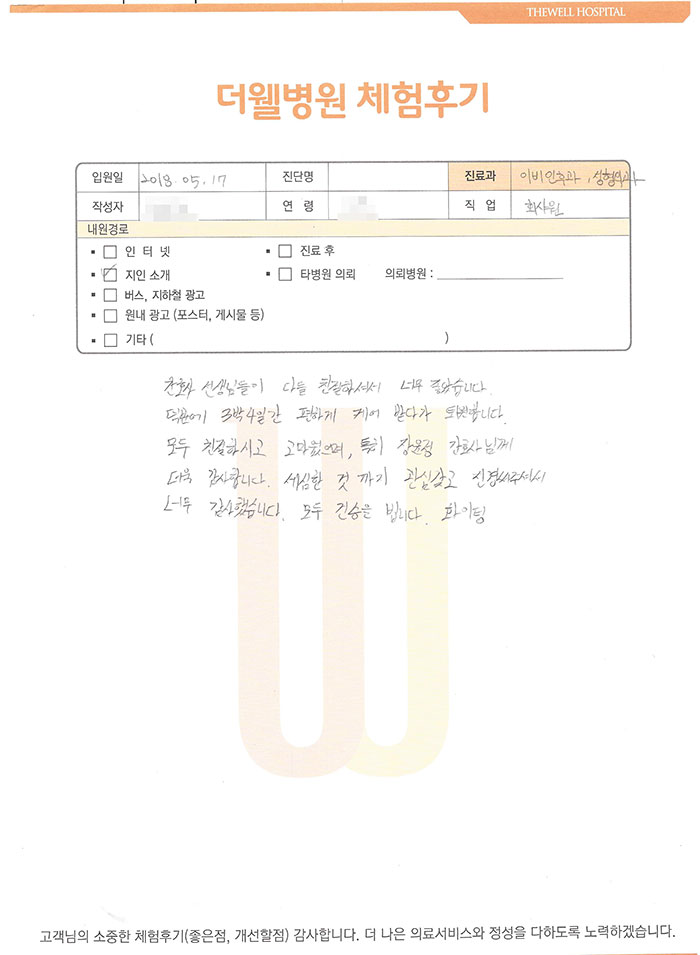 THEWELL HOSPITAL
더웰병원 체험후기
입원일 2018. 05. 17 진단명 진료과 이비인후과, 성형외과
작성자 연 령 직 업 회사원
내원경로
인 터 넷 진료 후
지인 소개 타병원 의뢰 의뢰병원 :
버스, 지하철 광고
원내 광고 (포스터, 게시물 등)
기타 ( )
간호사 선생님들이 다들 친절하셔서 너무 좋았습니다.
덕분에 3박4일간 편하게 케어 받다가 퇴원합니다.
모두 친절하시고 고마웠으며, 특히 장윤정 간호사님께
더욱 감사합니다. 세심한 것 까지 관심갖고 신경써주셔서
너무 감사했습니다. 모두 건승을 빕니다. 화이팅
고객님의 소중한 체험후기(좋은점, 개선할점) 감사합니다. 더 나은 의료서비스와 정성을 다하도록 노력하겠습니다.